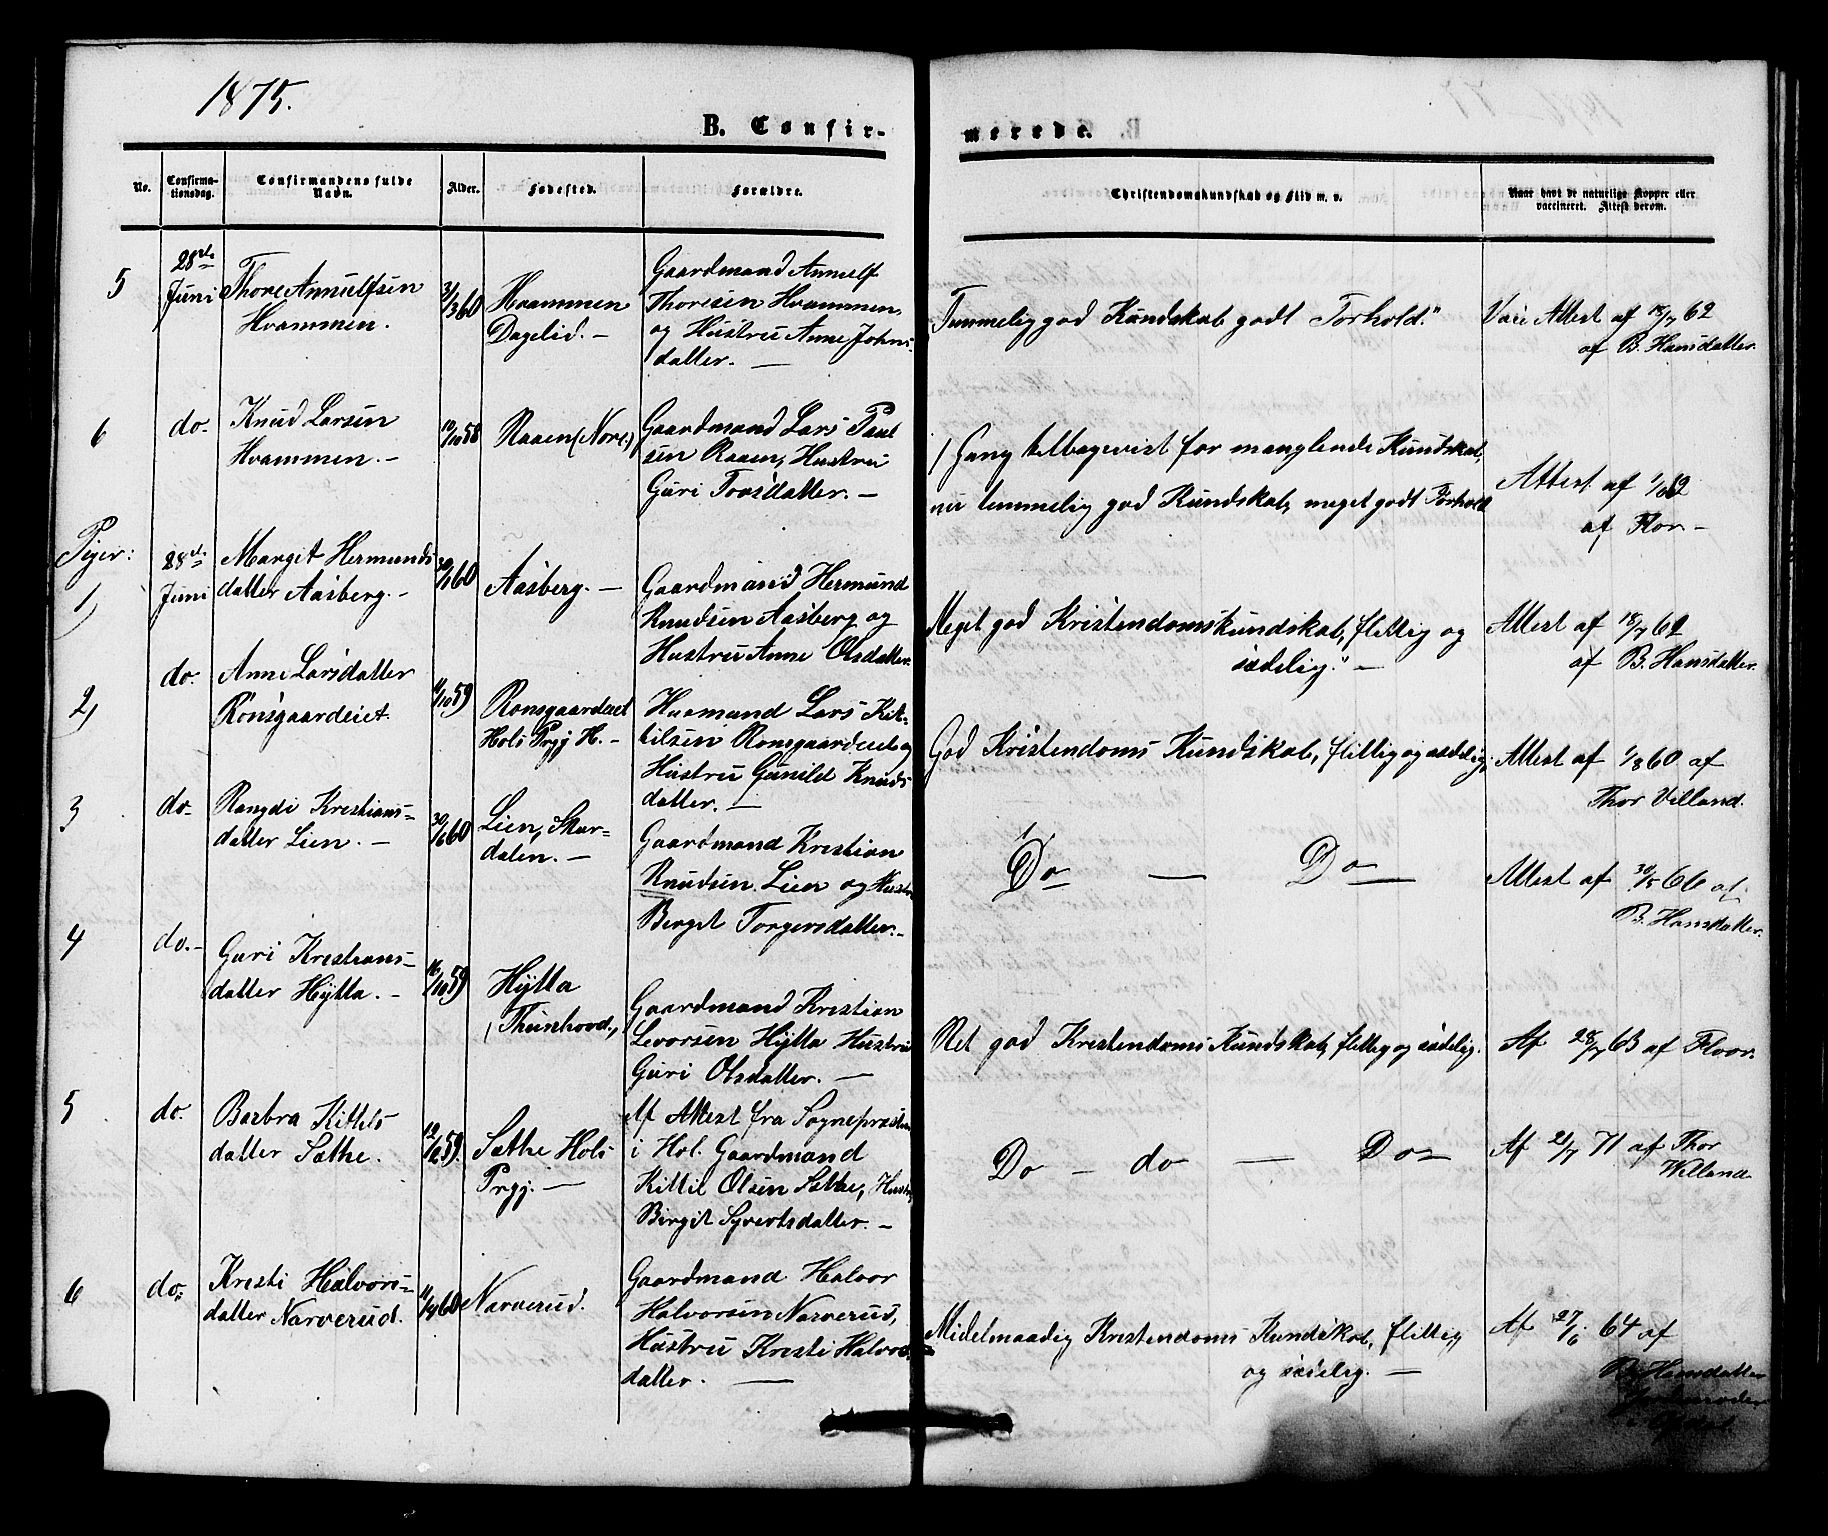 1875.
B. Confir-
merede.
No.
Confirma-
tionsdag.
Confirmandens fulde
Navn.
Alder.
Fødested.
Forældre.
Christendomskundskab og Flid m. v.
Naar havt de naturlige Kopper eller
vaccineret. Attest derom.
5
28de
Juni
Thore Annulfsen
Hvammen.
3/3 60
Hvammen
Dagelid. -
Gaardmand Annulf
Thoresen Hvammen
og Hustru Anne Johns
datter. -
Temmelig god Kundskab godt Forhold."
Vac: Attest af 18/7 62
af B. Hansdatter.
6
do.
Knud Larsen
Hvammen. -
10/10 58
Raaen (Nore)
Gaardmand Lars Paul
sen Raaen, Hustru
Guri Toosdatter. -
1 Gang tilbagevist for manglende Kundskab,
nu temmelig god Kundskab, meget godt Forhold
Attest af 1/6 62
af Flor -
Piger:
1)
28de
Juni
Margit Hermunds
datter Aasberg. -
30/1 60
Aasberg. -
Gaardmand Hermund
Knudsen Aasberg og
Hustru Anne Olsdatter.
Meget god Kristendomskundskab, flittig og
sædelig." -
Attest af 18/7 62
af B. Hansdatter.
2)
do.
Anne Larsdatter
Ronsgaardeiet.
11/10 59
Ronsgaardeiet
Hols Prgj H. -
Husmand Lars Kit-
tilsen Ronsgaardeiet og
Hustru Gunild Knuds
datter. -
God Kristendoms Kundskab, flittig og sædelig.
Attest af 1/8 60 af
Thor Villand.
3
do -
Rangdi Kristians=
datter Lien. -
30/6 60
Lien, Skur-
dalen. -
Gaardmand Kristian
Knudsen Lien og Hustru
Birgit Torgersdatter. -
Do - Do -
Attest af 30/5 66 af
B. Hansdatter.
4
do. -
Guri Kristians=
datter Hÿtta. -
16/10 59
Hÿtta
(Thunhovd.)
Gaardmand Kristian
Levorsen Hÿtta Hustru
Guri Olsdatter. -
Ret god Kristendoms Kundskab, flittig og sædelig.
Af 28/7 63 af Floor.
5
do.
Barbra Kittils
datter Sæthe.
12/12 59.
Sæthe Hols
Prgj. -
Af Attest fra Sognepræsten
i Hol. Gaardmand
Kittil Olsen Sæthe, Hustru
Birgit Syvertsdatter. -
Do - do - Do -
Af 21/7 71 af Thor
Villand
6
do.
Kristi Halvors=
datter Narverud.
11/4 60
Narverud.
Gaardmand Halvor
Halvorsen Narverud,
Hustru Kristi Halvors
datter. -
Midelmaadig Kristendoms Kundskab, flittig,
og sædelig. -
Af 27/6 64 af
B. Hansdatter